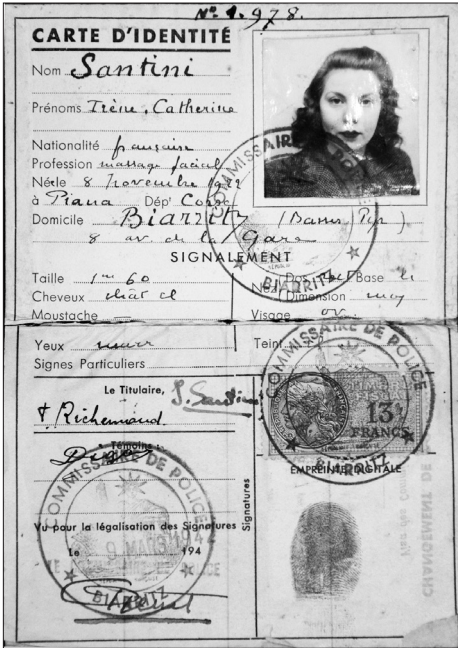 Nº 1.978.
CARTE D'IDENTITÉ
Nom Santini
Prénoms Irène, Catherine
Nationalité française
Profession massage facial
Née le 8 novembre 1922
à Piana Dépt Corse
Domicile Biarritz (Basses Pyr)
8 av. de la Gare
SIGNALEMENT
Taille 1m 60
Cheveux chat cl
Moustache
Nez Dos Base
Dimension moy
Visage ov
Yeux
Teint
Signes Particuliers
Le Titulaire, I. Santini
Richemond
Témoins :
Signatures
Vu pour la légalisation des Signatures
Le 9 MAR 194
COMMISSAIRE DE POLICE
BIARRITZ
COMMISSAIRE DE POLICE
BIARRITZ
COMMISSAIRE DE POLICE
BIARRITZ
TIMBRE
FISCAL
13
FRANCS
EMPREINTE DIGITALE
CHANGEMENT DE